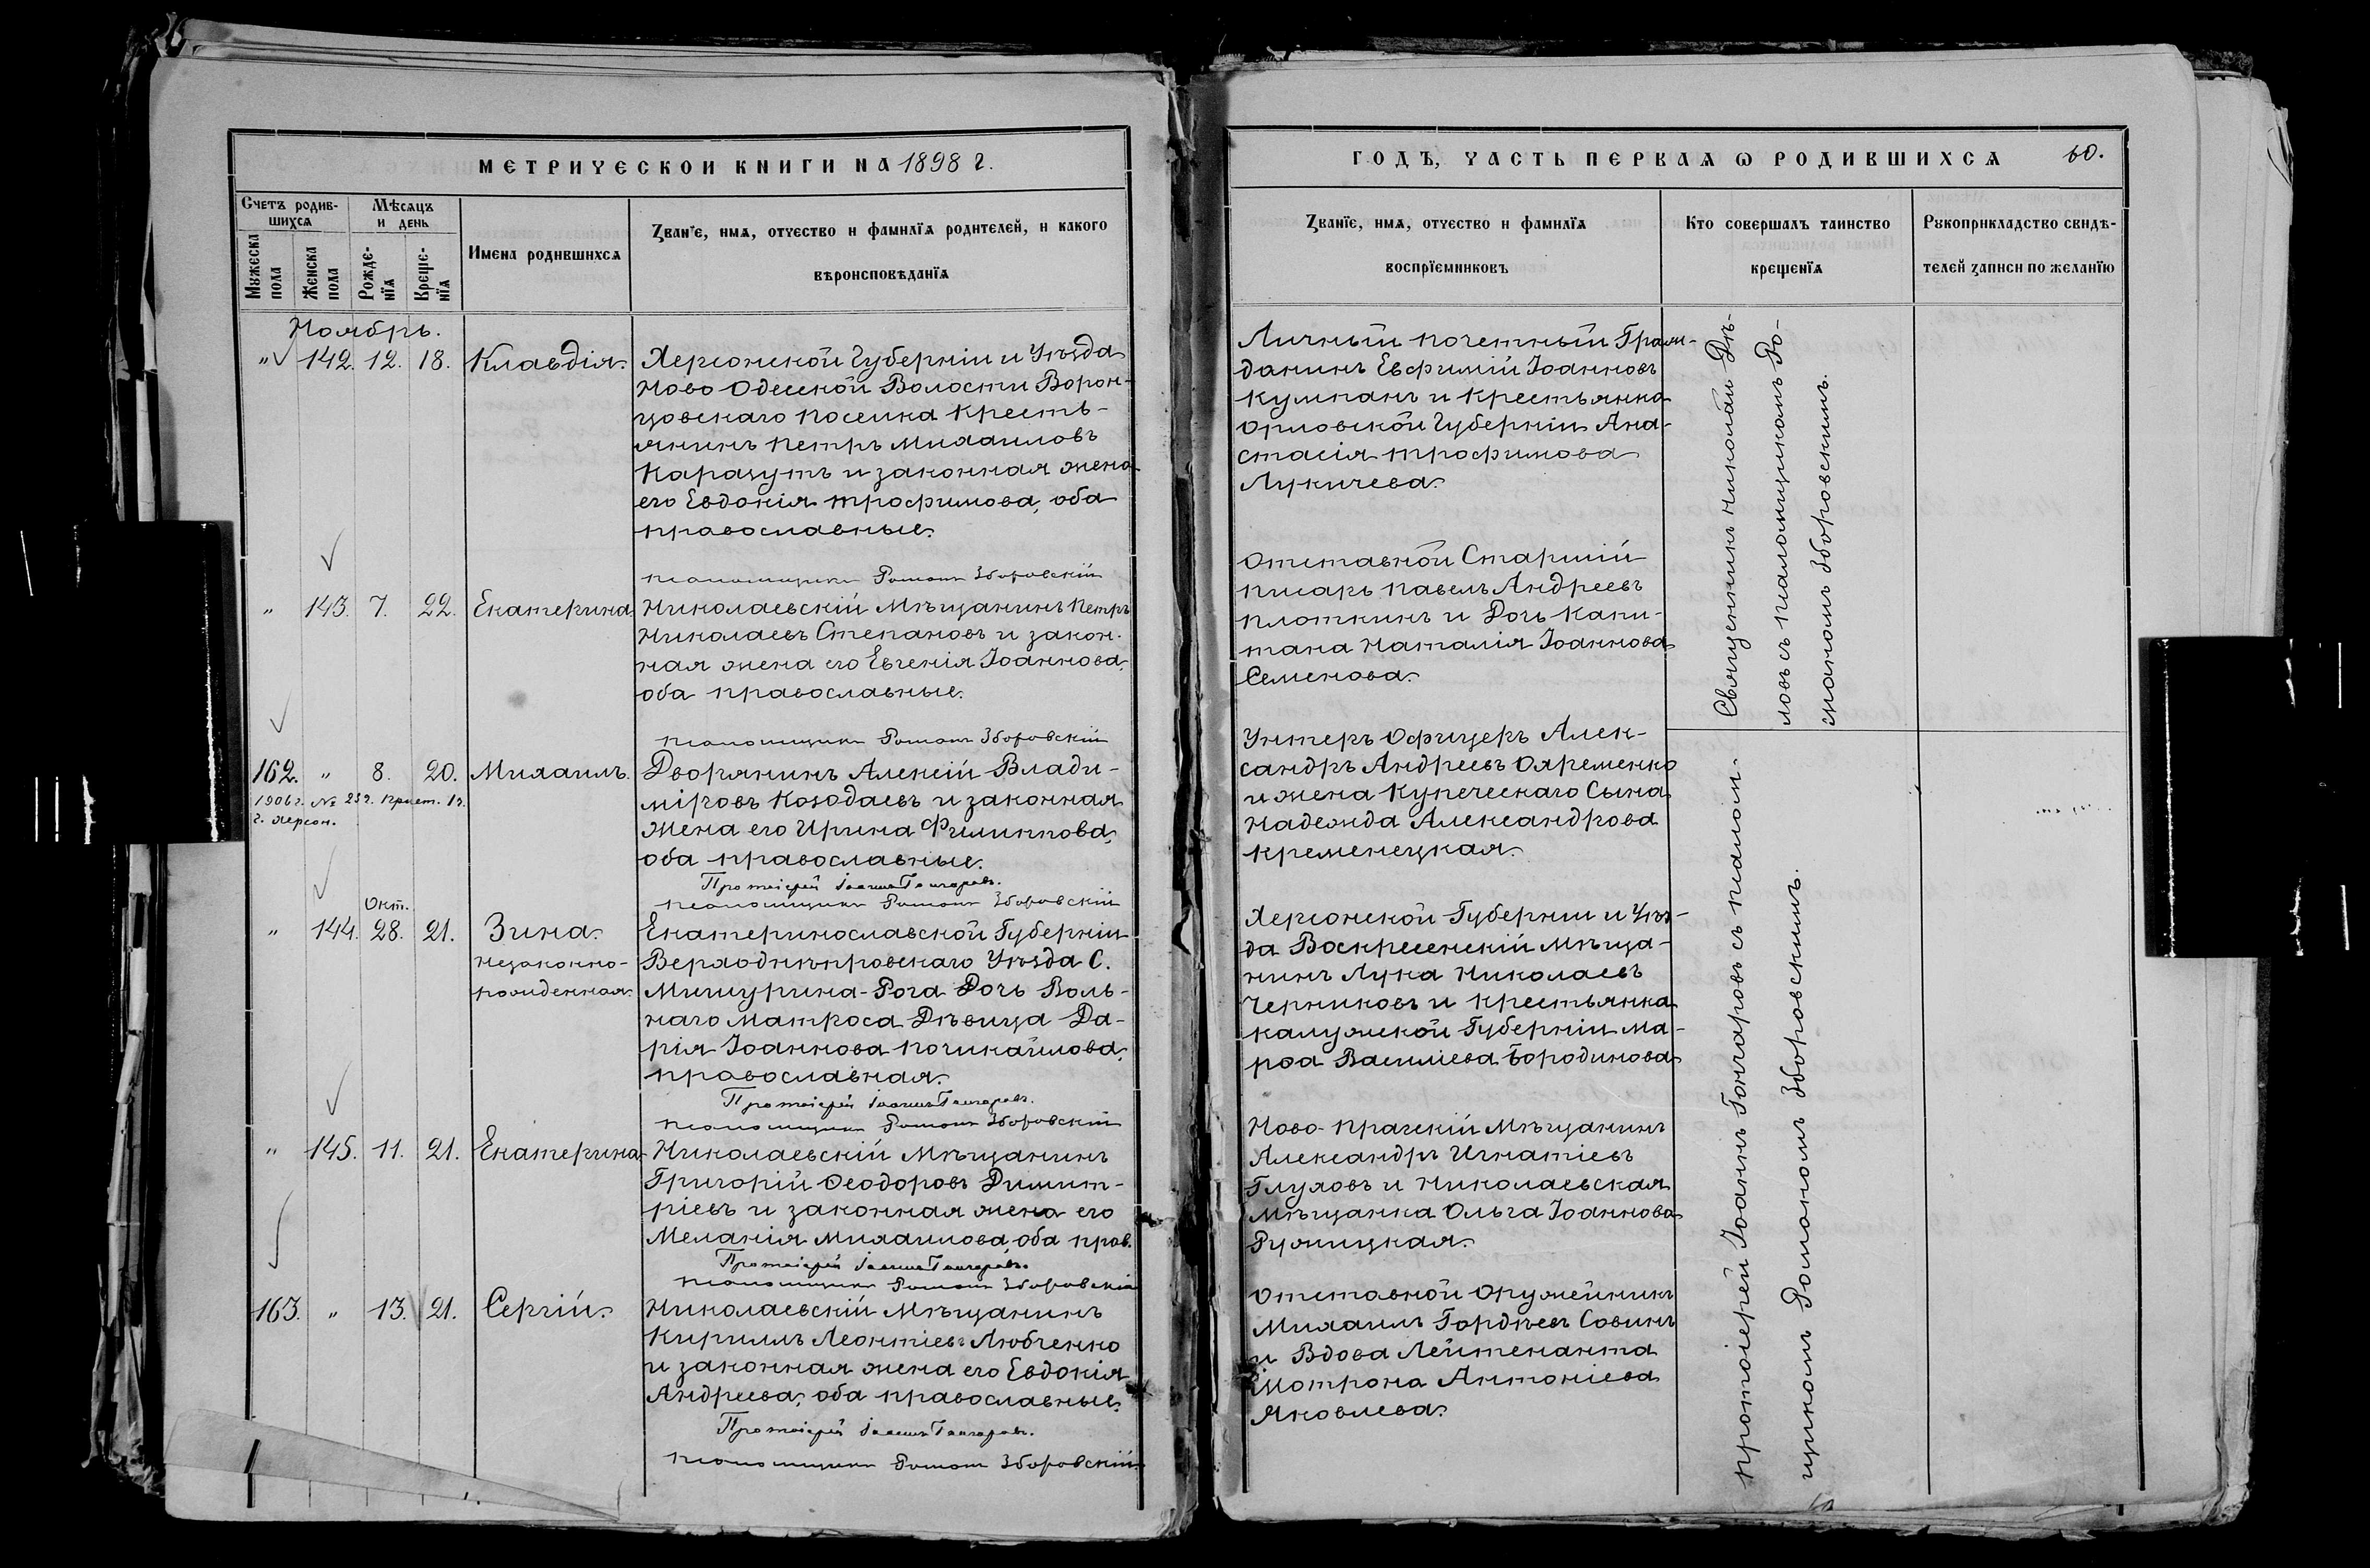 МЕТРИЧЕСКОИ КНИГИ НА 1898 г.
Счетъ родив-
шихся
Мѣсяцъ
и день
Мужеска
пола
Женска
пола
Рожде-
нїя
Креще-
нїя
Имена родившихся
Званїе, имя, отчество и фамилїя родителей, и какого
вѣроисповѣданїя
Ноябрь.
" 142. 12. 18. Клавдія.
Херсонской Губерніи и Уѣзда
Ново Одесской Волости Ворон-
цовскаго поселка Кресть-
янинъ Петръ Михаиловъ
Карацутъ и законная жена
его Евдокія Трофимова, оба
православные.
Псаломщикъ Романъ Зборовскій
" 143. 7. 22. Екатерина.
Николаевскій Мѣщанинъ Петръ
Николаевъ Степановъ и закон-
ная жена его Евгенія Іоаннова,
оба православные.
Псаломщикъ Романъ Зборовскій
162. " 8. 20. Михаилъ.
1906 г. №
г. Херсон.
Дворянинъ Алексій Влади-
міровъ Козодаевъ и законная
жена его Ирина Филиппова,
оба православные.
Протоіерей Іоаннъ Гончаровъ.
Псаломщикъ Романъ Зборовскій
Окт.
" 144. 28. 21. Зина.
незаконно-
рожденная.
Екатеринославской Губерніи
Верходнѣпровскаго Уѣзда С.
Мишурина-Рога Дочь Воль-
наго Матроса Дѣвица Да-
рія Іоаннова Почикайлова,
православная.
Протоіерей Іоаннъ Гончаровъ.
Псаломщикъ Романъ Зборовскій
" 145. 11. 21. Екатерина
Николаевскій Мѣщанинъ
Григорій Ѳеодоровъ Димит-
ріевъ и законная жена его
Меланія Михаилова, оба прав.
Протоіерей Іоаннъ Гончаровъ.
Псаломщикъ Романъ Зборовскій
163. " 13. 21. Сергій.
Николаевскій Мѣщанинъ
Кириллъ Леонтіевъ Любченко
и законная жена его Евдокія
Андреева, оба православные.
Протоіерей Іоаннъ Гончаровъ.
Псаломщикъ Романъ Зборовскій.
ГОДЪ, ЧАСТЬ ПЕРВАЯ Ѡ РОДИВШИХСЯ 60.
Званїе, имя, отчество и фамилїя
воспрїемниковъ
Кто совершалъ таинство
крещенїя
Рукоприкладство свидѣ-
телей записи по желанїю
Личный почетный Граж-
данинъ Евфимій Іоанновъ
Кумпанъ и Крестьянка
Орловской Губерніи Ана-
стасія Трофимова
Лукичева.
Отставной Старшій
писарь Павелъ Андреевъ
Плоткинъ и Дочь Капи-
тана Наталія Іоаннова
Семенова.
Унтеръ Офицеръ Алек-
сандръ Андреевъ Охременко
и жена Купеческаго Сына
Надежда Александрова
Кременецкая.
Херсонской Губерніи и Уѣз-
да Воскресенскій Мѣща-
нинъ Лука Николаевъ
Черниковъ и Крестьянка
Калужской Губерніи Ма-
рѳа Василіева Бородинова
Ново-Прагскій Мѣщанинъ
Александръ Игнатіевъ
Глуховъ и Николаевская
Мѣщанка Ольга Іоаннова
Ружицкая.
Отставной Оружейникъ
Михаилъ Гордѣевъ Совинъ
и Вдова Лейтенанта
Мотрона Антоніева
Яковлева.
Священникъ Николай Дѣ-
ловъ съ псаломщикомъ Ро-
маномъ Зборовскимъ.
Протоіерей Іоаннъ Гончаровъ съ псалом-
щикомъ Романомъ Зборовскимъ.